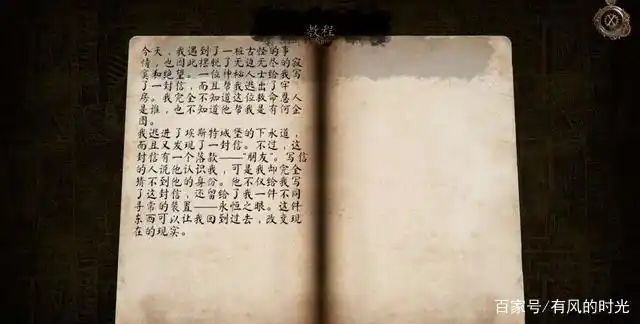 教程
今天，我遇到了一桩古怪的事
情，也因此摆脱了无边无尽的寂
寞和绝望。一位神秘人士给我写
了一封信，而且帮我逃出了牢
房。我完全不知道这位救命恩人
是谁，也不知道他帮我是有何企
图。
我逃进了埃斯特城堡的下水道，
而且又发现了一封信。不过，这
封信有一个落款——“朋友”。写信
的人说他认识我，可是我却完全
猜不到他的身份。他不仅给我写
了这封信，还留给了我一件不同
寻常的装置——永恒之眼。这件
东西可以让我回到过去，改变现
在的现实。
百家号/有风的时光